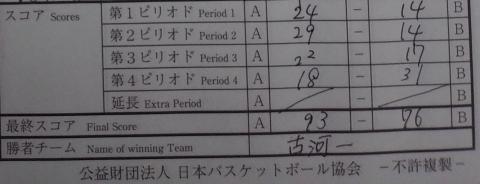 スコア Scores 第1ピリオド Period 1 A 24 - 14 B
第2ピリオド Period 2 A 29 - 14 B
第3ピリオド Period 3 A 22 - 17 B
第4ピリオド Period 4 A 18 - 31 B
延長 Extra Period A - B
最終スコア Final Score A 93 - 76 B
勝者チーム Name of winning Team 古河一
公益財団法人 日本バスケットボール協会 －不許複製－